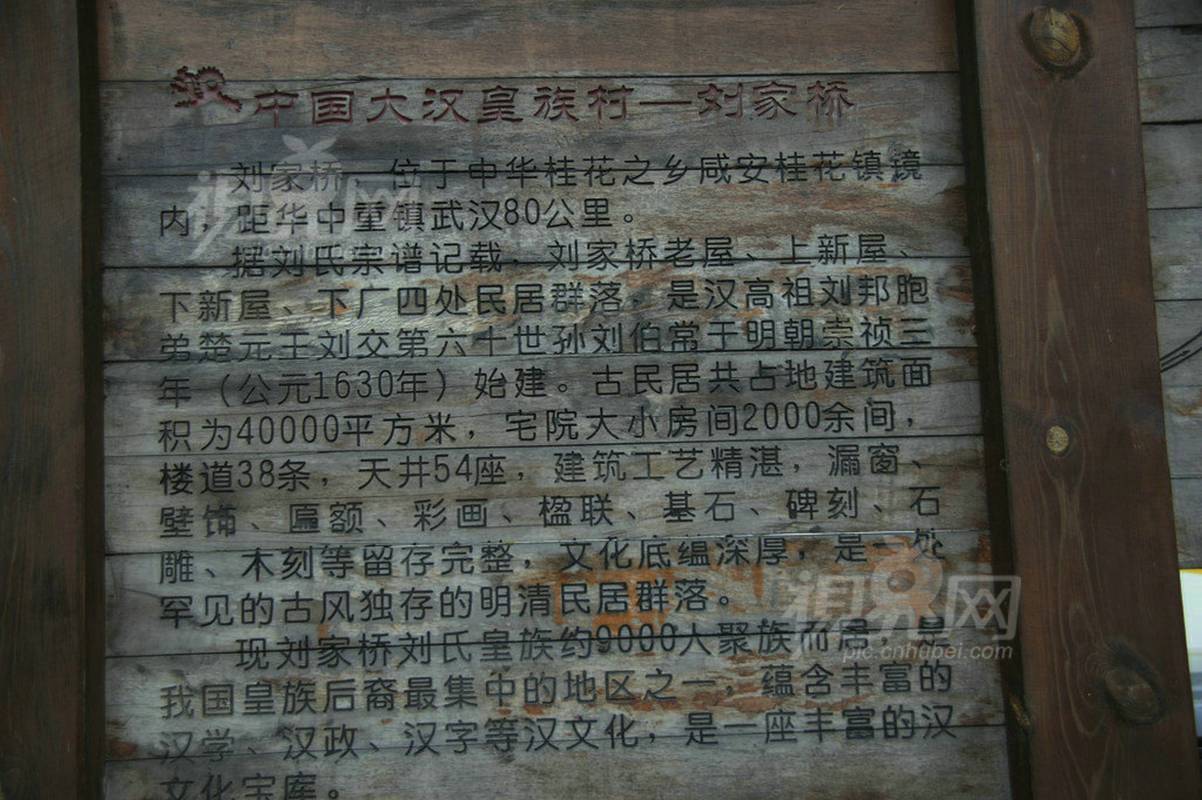 中国大汉皇族村—刘家桥
刘家桥，位于中华桂花之乡咸安桂花镇镜
内，距华中重镇武汉80公里。
据刘氏宗谱记载，刘家桥老屋、上新屋、
下新屋、下厂四处民居群落，是汉高祖刘邦胞
弟楚元王刘交第六十世孙刘伯常于明朝崇祯三
年（公元1630年）始建。古民居共占地建筑面
积为40000平方米，宅院大小房间2000余间，
楼道38条，天井54座，建筑工艺精湛，漏窗、
壁饰、匾额、彩画、楹联、基石、碑刻、石
雕、木刻等留存完整，文化底蕴深厚，是一处
罕见的古风独存的明清民居群落。
现刘家桥刘氏皇族约9000人聚族而居，是
我国皇族后裔最集中的地区之一，蕴含丰富的
汉学、汉政、汉字等汉文化，是一座丰富的汉
文化宝库。
视界网
pic.cnhubei.com